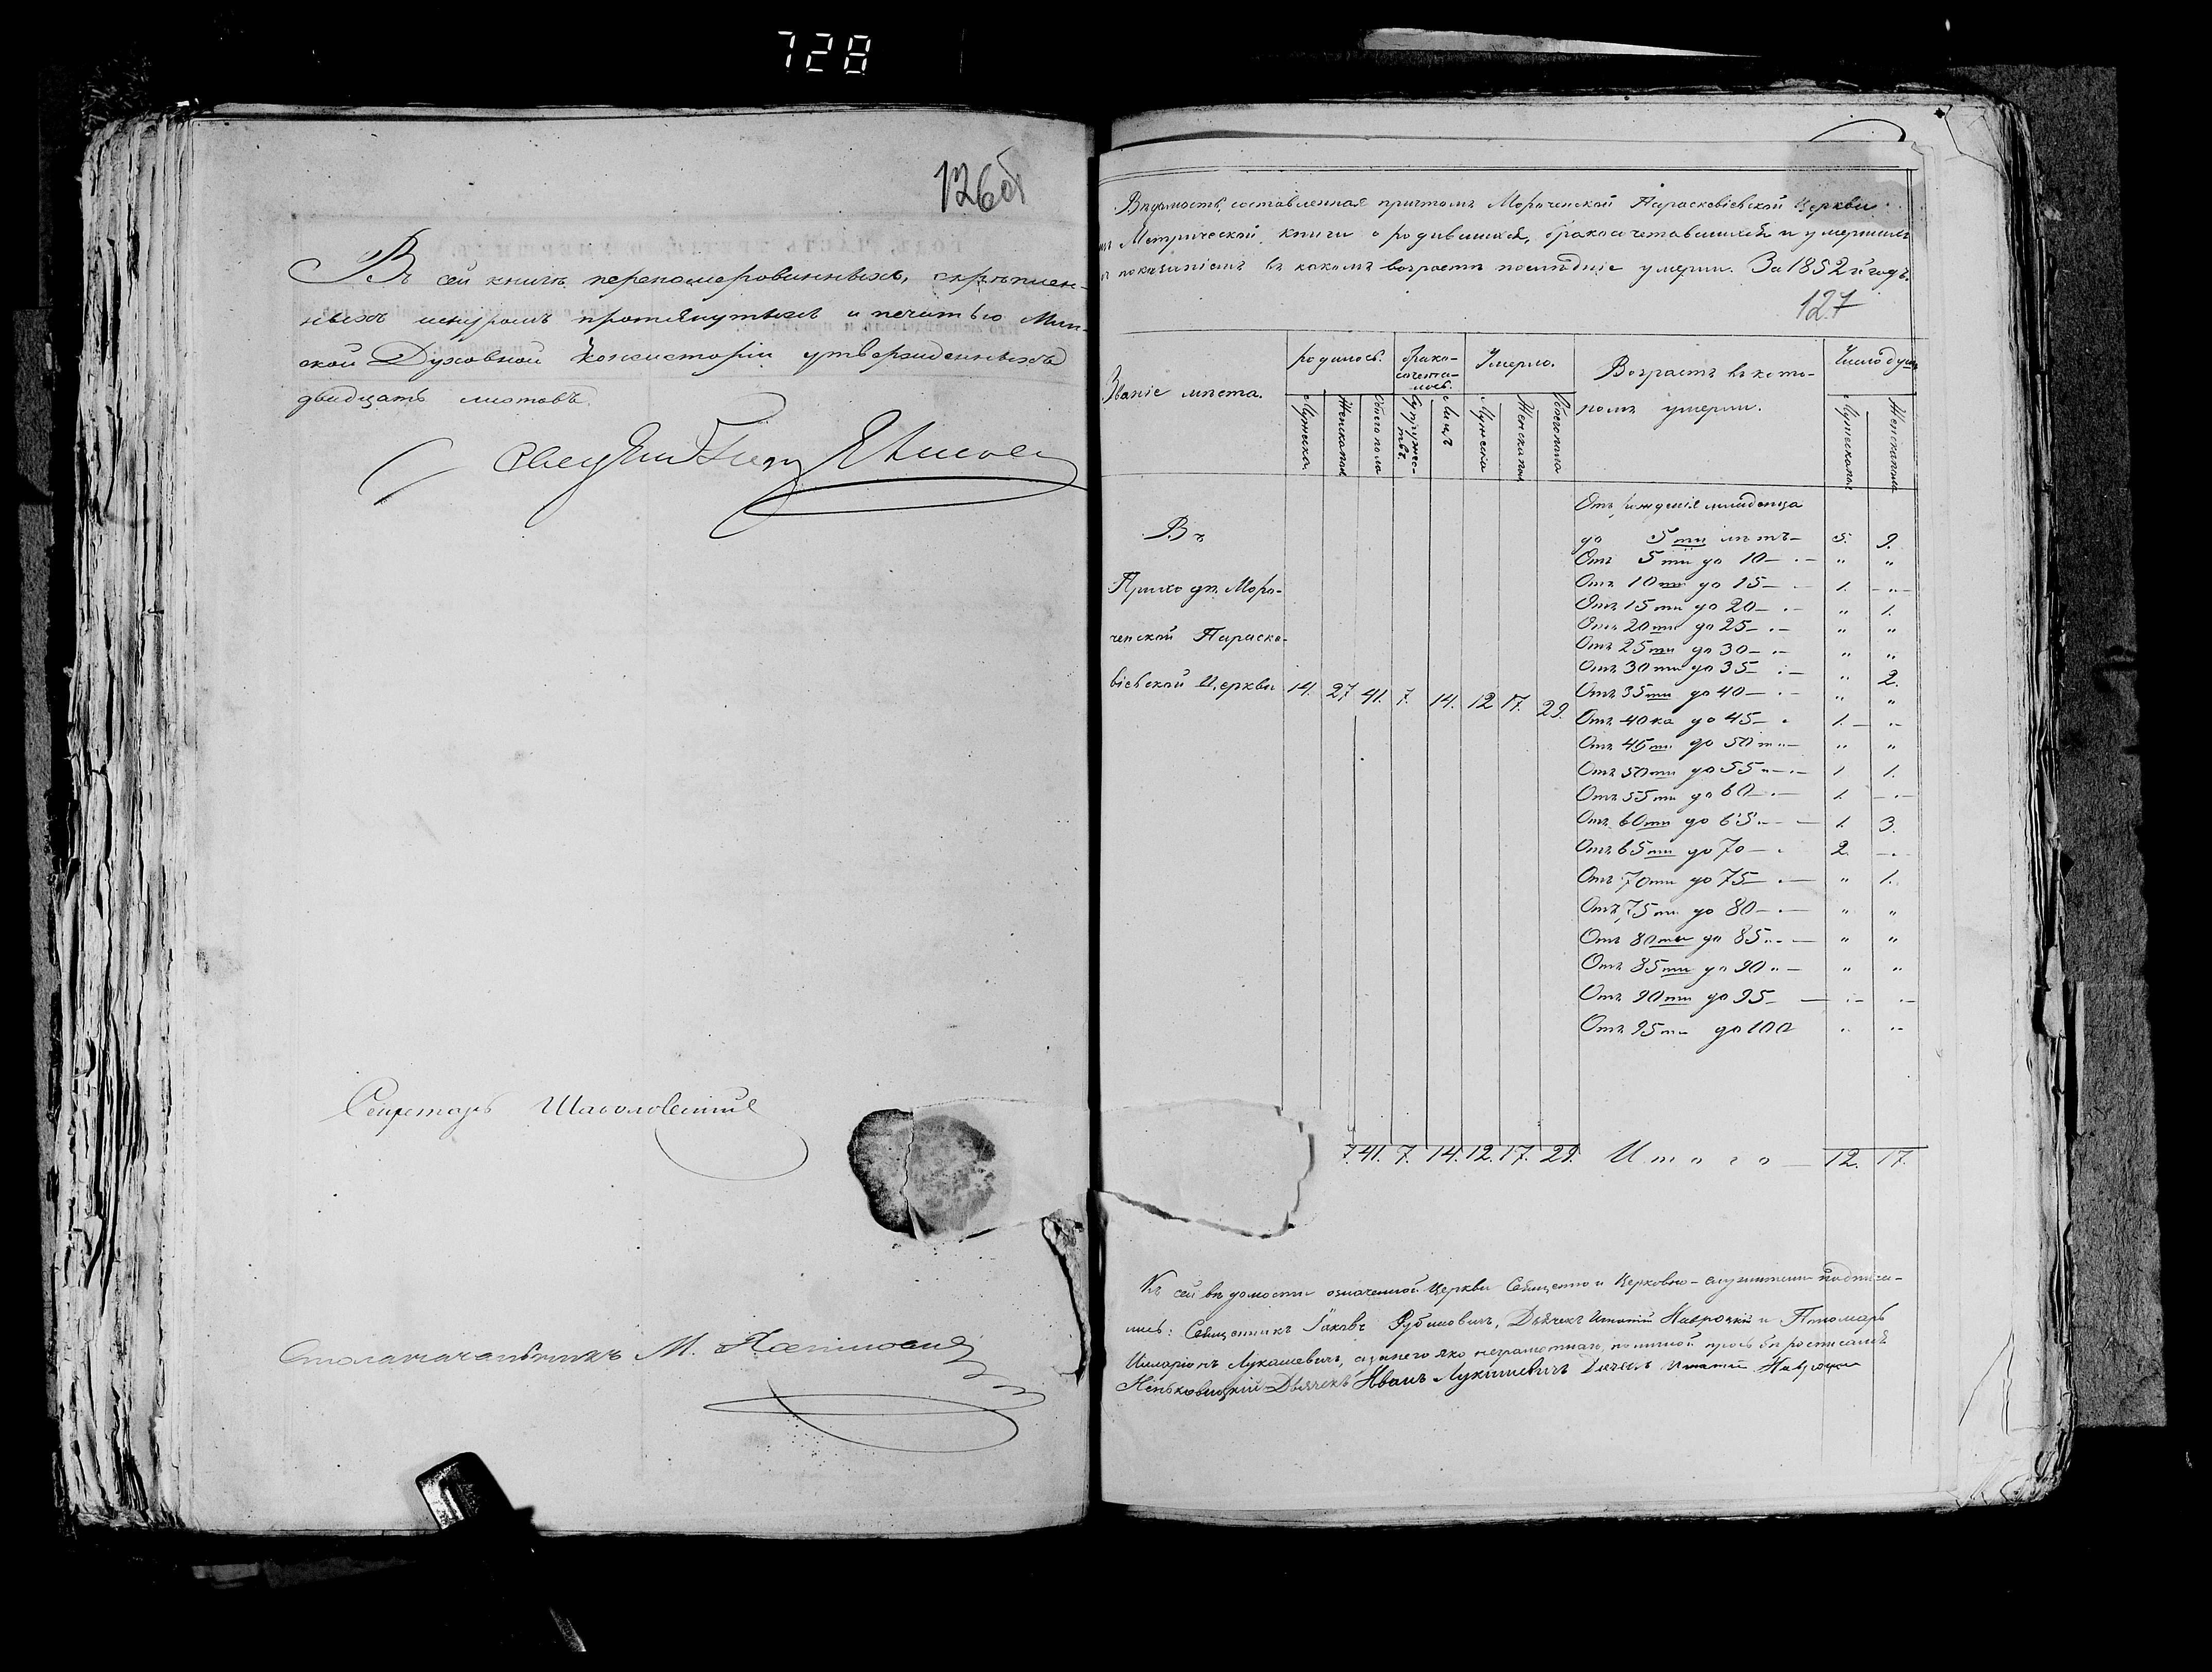 728
126об
Въ сей книгѣ переномерованныхъ, скрѣплен-
ныхъ шнуромъ протянутыхъ и печатью Мин-
ской Духовной Консисторіи утвержденныхъ
двадцать листовъ.
Секретарь
Столоначальникъ М.
Вѣдомость, составленная причтомъ Мороченской Параскевіевской Церкви
Метрической книги о родившихся, бракосочетавшихся и умершихъ
показаніемъ въ какомъ возрастѣ послѣдніе умерли. За 1852й годъ.
127
Званіе мѣста.
родилось.
Мужеска
Женска пол
Обоего пола
брако-
сочета-
лось.
Супружес-
твъ
Лицъ
Умерло.
Мужеска
Женска пол
Обоего пола
Возрастъ въ кото-
ромъ умерли.
Число душъ
Мужеска пол
Женска пола
Въ
Приходѣ Моро-
ченской Параске-
віевской Церкви 14. 27 41. 7. 14. 12 17. 29.
Отъ рожденія младенца
до 5ти лѣтъ— 5. 9.
Отъ 5ти до 10— „ „
Отъ 10ти до 15— 1. —„—
Отъ 15ти до 20— „ 1.
Отъ 20ти до 25— „ „
Отъ 25ти до 30— „ „
Отъ 30ти до 35 „ 2.
Отъ 35ти до 40— „ „
Отъ 40ка до 45— 1.— „
Отъ 45ти до 50ти— „ „
Отъ 50ти до 55„— 1 1.
Отъ 55ти до 60— 1. —
Отъ 60ти до 65— 1. 3.
Отъ 65ти до 70— 2. —
Отъ 70ти до 75— „ 1.
Отъ 75ти до 80— „ „
Отъ 80ти до 85— „ „
Отъ 85ти до 90„— „ „
Отъ 90ти до 95— „ „
Отъ 95ти до 100 „ „
7. 41. 7. 14. 12. 17. 29. Итого— 12. 17.
Къ сей вѣдомости означенной Церкви Священно и Церковно-служители подписа-
лись: Священникъ Іаковъ Рубинович, Дьячекъ Игнатій Навроцкій и Пономарь
Илларіонъ Лукашевичъ, а за него яко неграмотнаго, по личной прозьбѣ росписался
Дьячекъ Иванъ Лукашевичъ Дячекъ Игнатій Навроцки